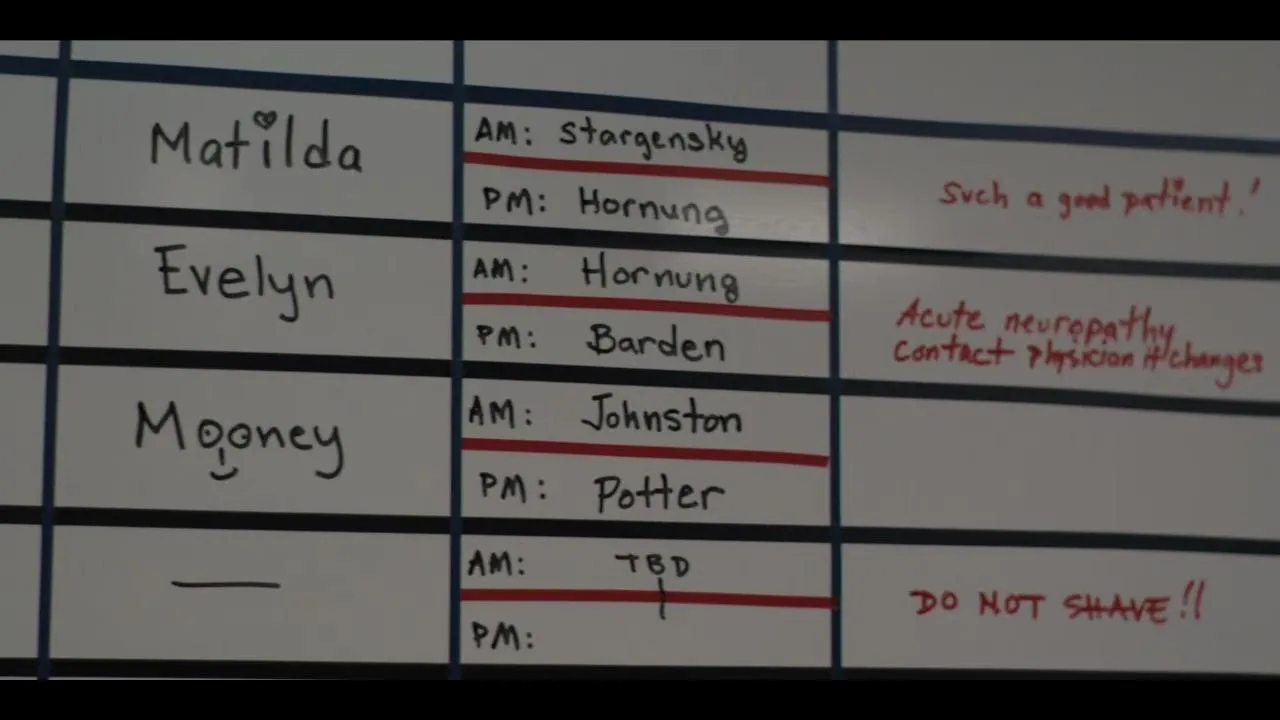 Matilda
AM: Stargensky
PM: Hornung
Such a good patient!
Evelyn
AM: Hornung
PM: Barden
Acute neuropathy
contact physicion if changes
Mooney
AM: Johnston
PM: Potter
AM: TBD
PM:
DO NOT SHAVE!!